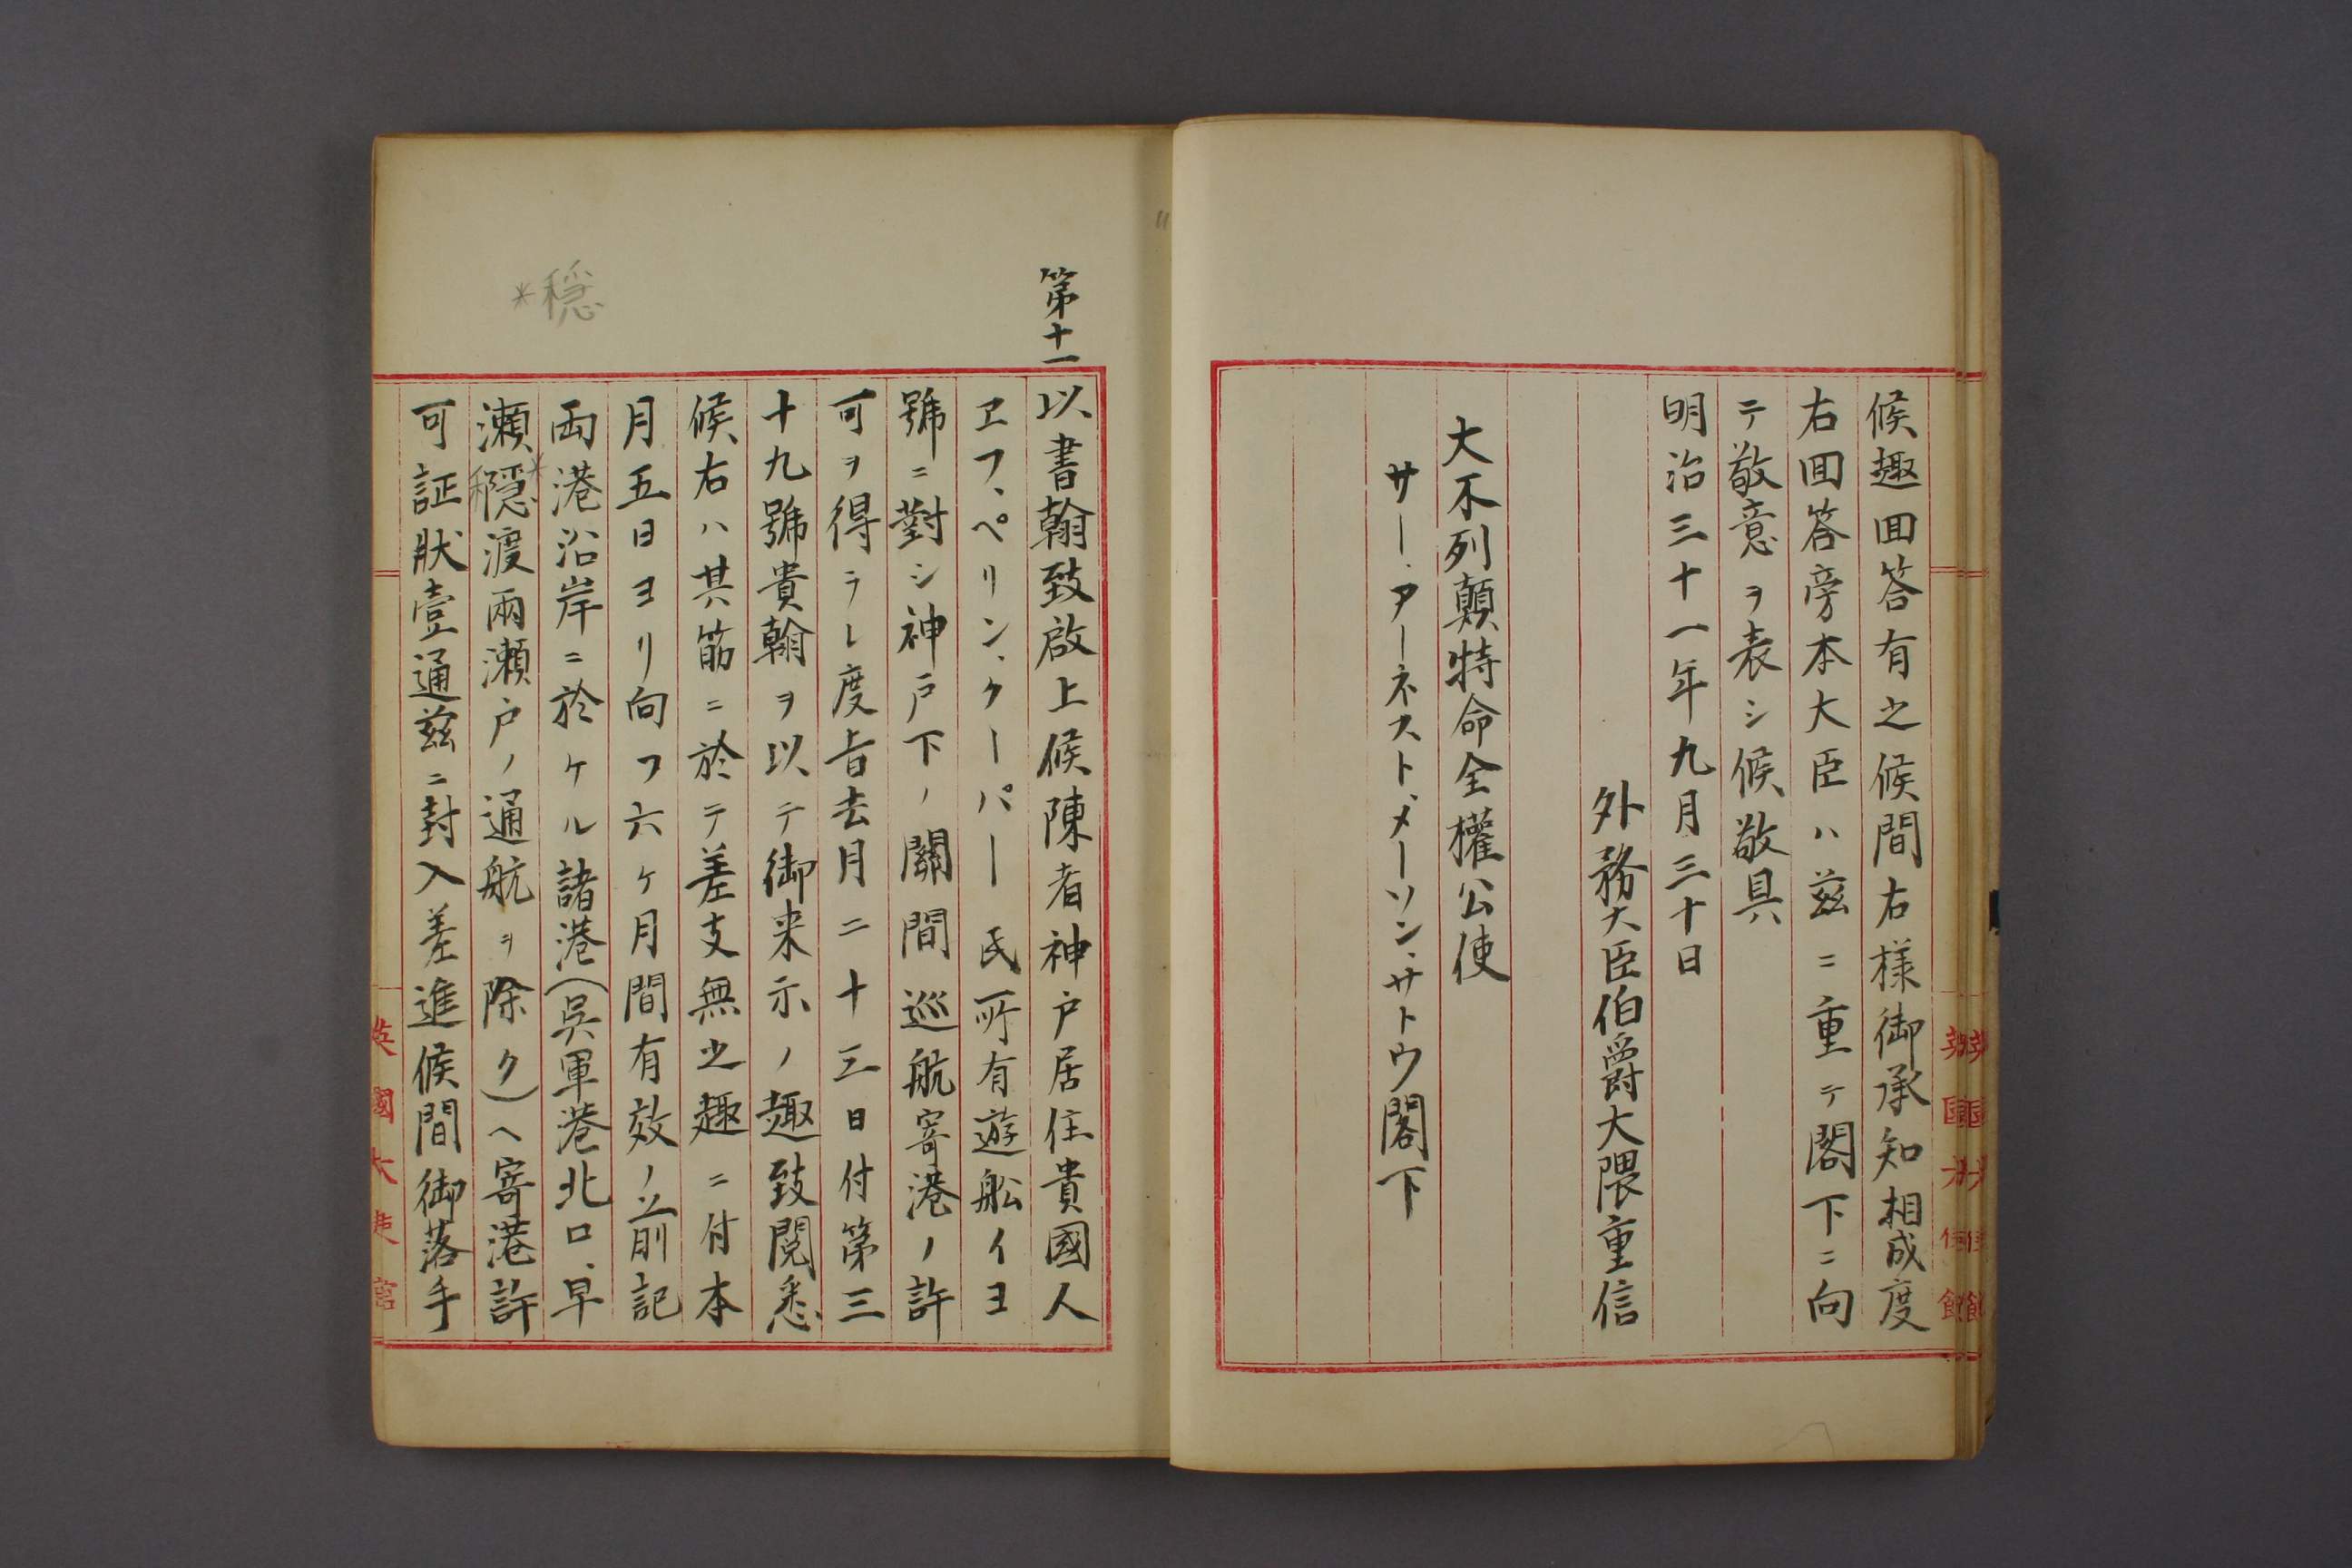 候趣回答有之候間右様御承知相成度
右回答旁本大臣ハ茲ニ重テ閣下ニ向
テ敬意ヲ表シ候敬具
明治三十一年九月三十日
外務大臣伯爵大隈重信
大不列顛特命全權公使
サー、アーネスト、メーソン、サトウ閣下
第十一
以書翰致啟上候陳者神戸居住貴國人
ヱフ、ペリン、クーパー氏所有遊舩イヨ
號ニ對シ神戸下ノ關間巡航寄港ノ許
可ヲ得ラレ度旨去月二十三日付第三
十九號貴翰ヲ以テ御来示ノ趣致閲悉
候右ハ其筋ニ於テ差支無之趣ニ付本
月五日ヨリ向フ六ヶ月間有效ノ前記
両港沿岸ニ於ケル諸港(呉軍港北口、早
瀬隠渡兩瀬戸ノ通航ヲ除ク)ヘ寄港許
可証狀壹通茲ニ封入差進候間御落手
*穏
英國大使館